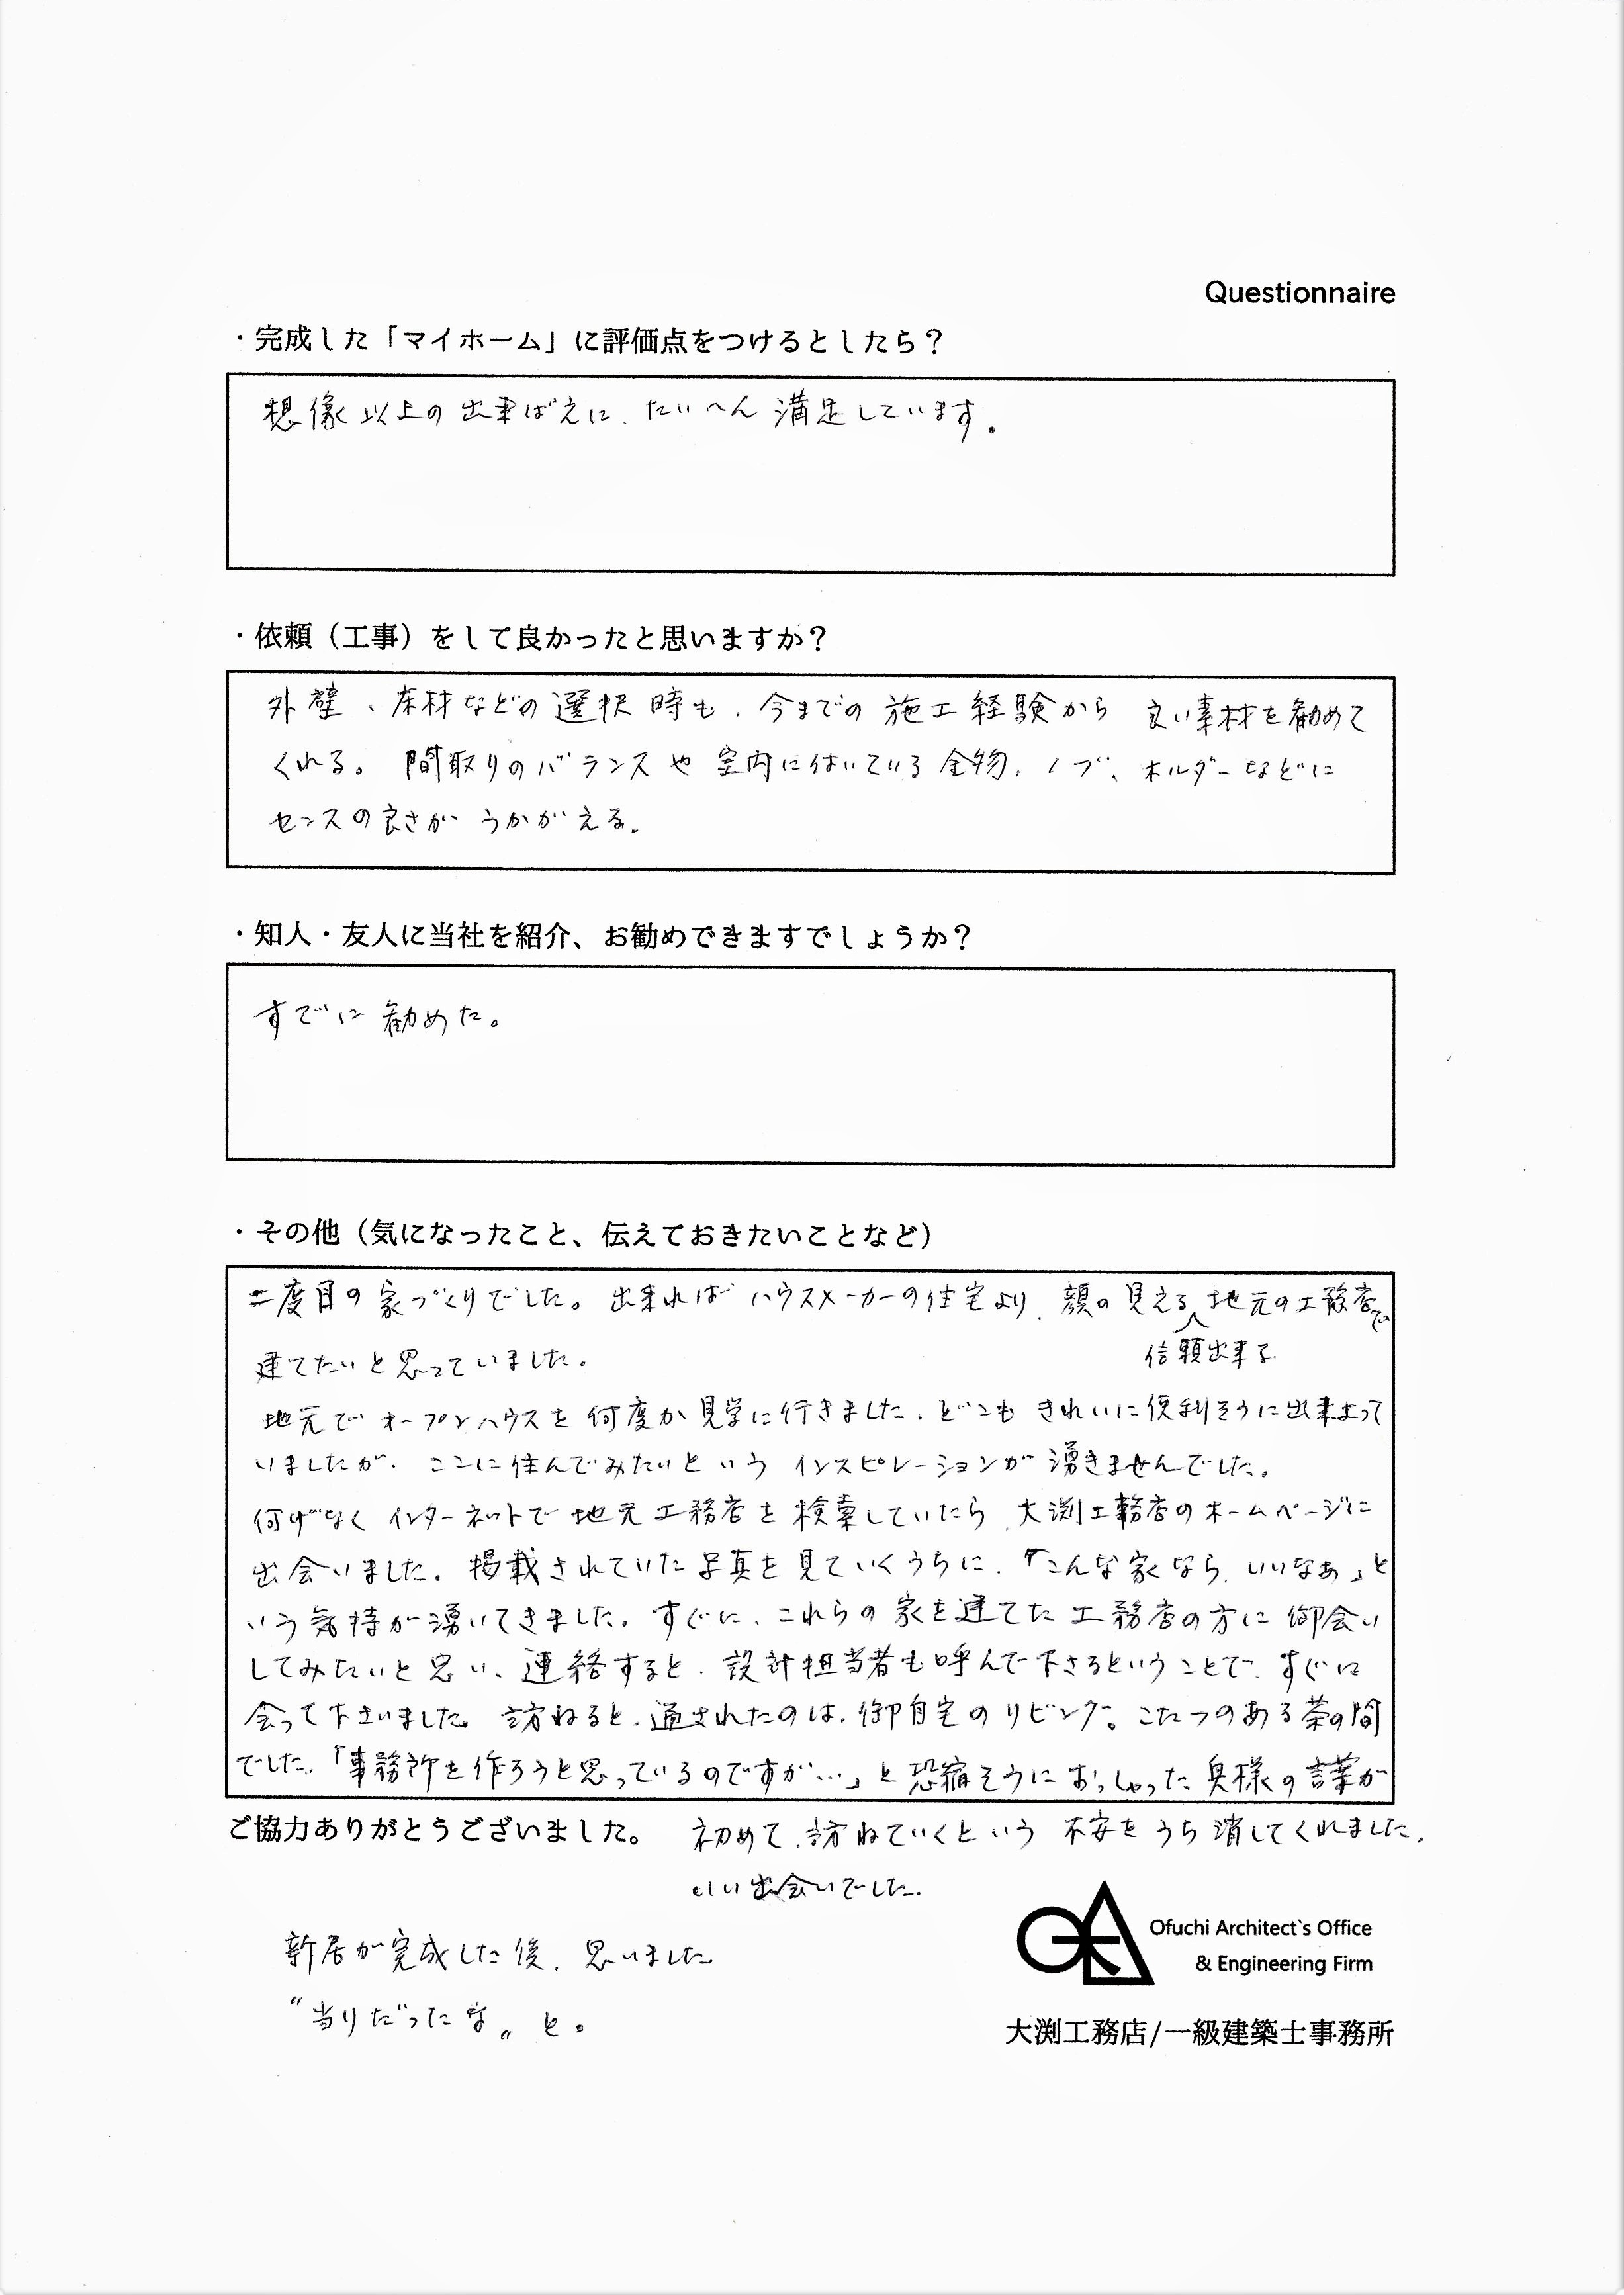 Questionnaire
・完成した「マイホーム」に評価点をつけるとしたら？
想像以上の出来ばえに、たいへん満足しています。
・依頼（工事）をして良かったと思いますか？
外壁、床材などの選択時も、今までの施工経験から 良い素材を勧めて
くれる。 間取りのバランスや室内に付いている金物、ノブ、ホルダーなどに
センスの良さが うかがえる。
・知人・友人に当社を紹介、お勧めできますでしょうか？
すでに勧めた。
・その他（気になったこと、伝えておきたいことなど）
二度目の家づくりでした。出来ればハウスメーカーの住宅より、顔の見える地元の工務店で
信頼出来る
建てたいと思っていました。
地元でオープンハウスを何度か見学に行きました。どこもきれいに便利そうに出来上って
いましたが、ここに住んでみたいという インスピレーションが湧きませんでした。
何げなくインターネットで地元工務店を検索していたら、大渕工務店のホームページに
出会いました。掲載されていた写真を見ていくうちに、「こんな家なら、いいなあ」と
いう気持が湧いてきました。すぐに、これらの家を建てた工務店の方に御会い
してみたいと思い、連絡すると、設計担当者も呼んで下さるということで、すぐに
会って下さいました。訪ねると、通されたのは、御自宅のリビング。こたつのある茶の間
でした。「事務所を作ろうと思っているのですが…」と恐縮そうにおっしゃった奥様の言葉が
ご協力ありがとうございました。 初めて訪ねていくという 不安をうち消してくれました。
いい出会いでした。
新居が完成した後、思いました
“当りだったな„と。
Ofuchi Architect`s Office
& Engineering Firm
大渕工務店/一級建築士事務所